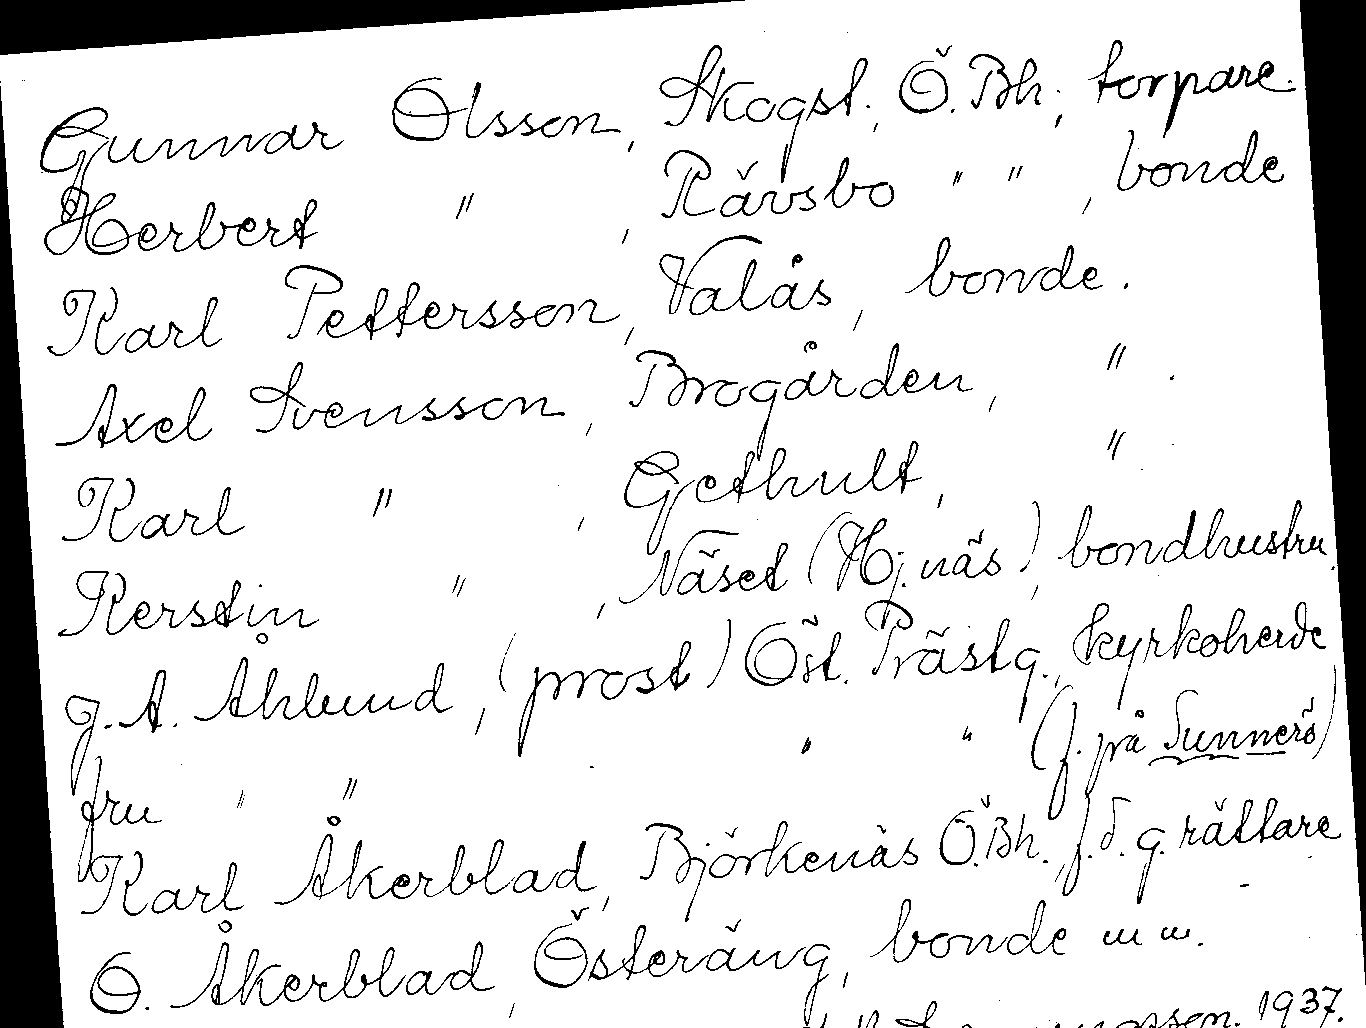 Gunnar Olsson, Skogst. Ö. Bh., torpare.
Herbert " , Rävsbo " " , bonde
Karl Pettersson, Valås, bonde.
Axel Svensson, Brogården, " .
Karl " , Gethult, "
Kerstin " , Näset (Hj. näs), bondhustru.
J. A. Åhlund, (prost) Öst. Prästg., kyrkoherde
fru " " " " (f. på Sunnerö)
Karl Åkerblad, Björkenäs Ö. Bh. f. d. g. rättare
O. Åkerblad, Österäng, bonde m m.
1937.